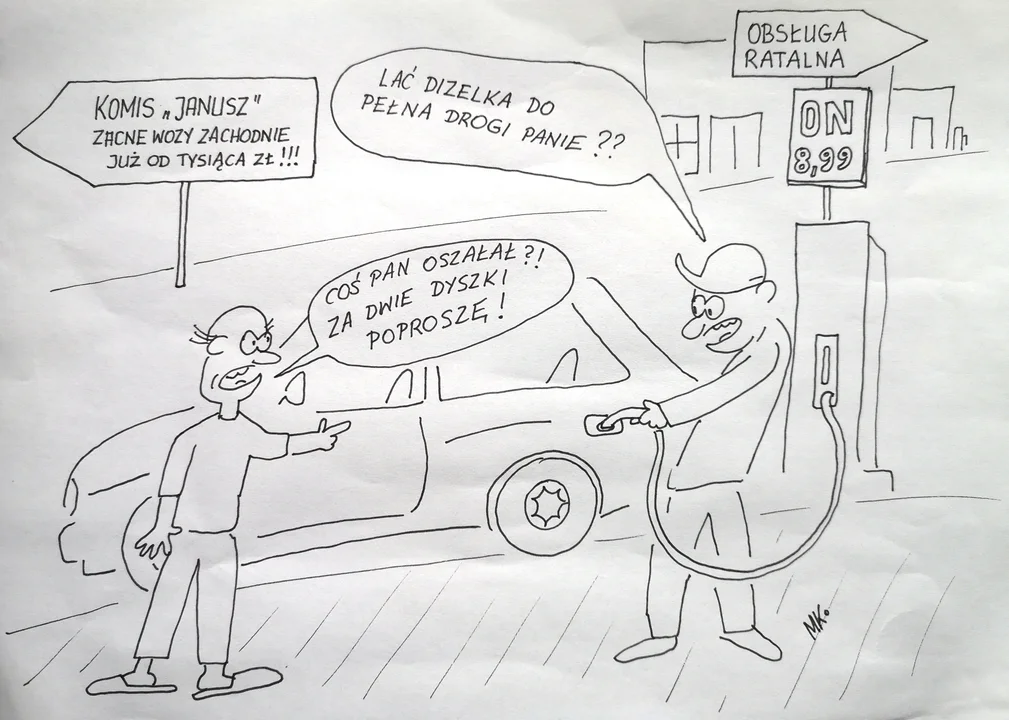 KOMIS „JANUSZ"
ZACNE WOZY ZACHODNIE
JUŻ OD TYSIĄCA ZŁ!!!
LAĆ DIZELKA DO
PEŁNA DROGI PANIE??
OBSŁUGA
RATALNA
ON
8,99
COŚ PAN OSZALAŁ?!
ZA DWIE DYSZKI
POPROSZĘ!
MK.